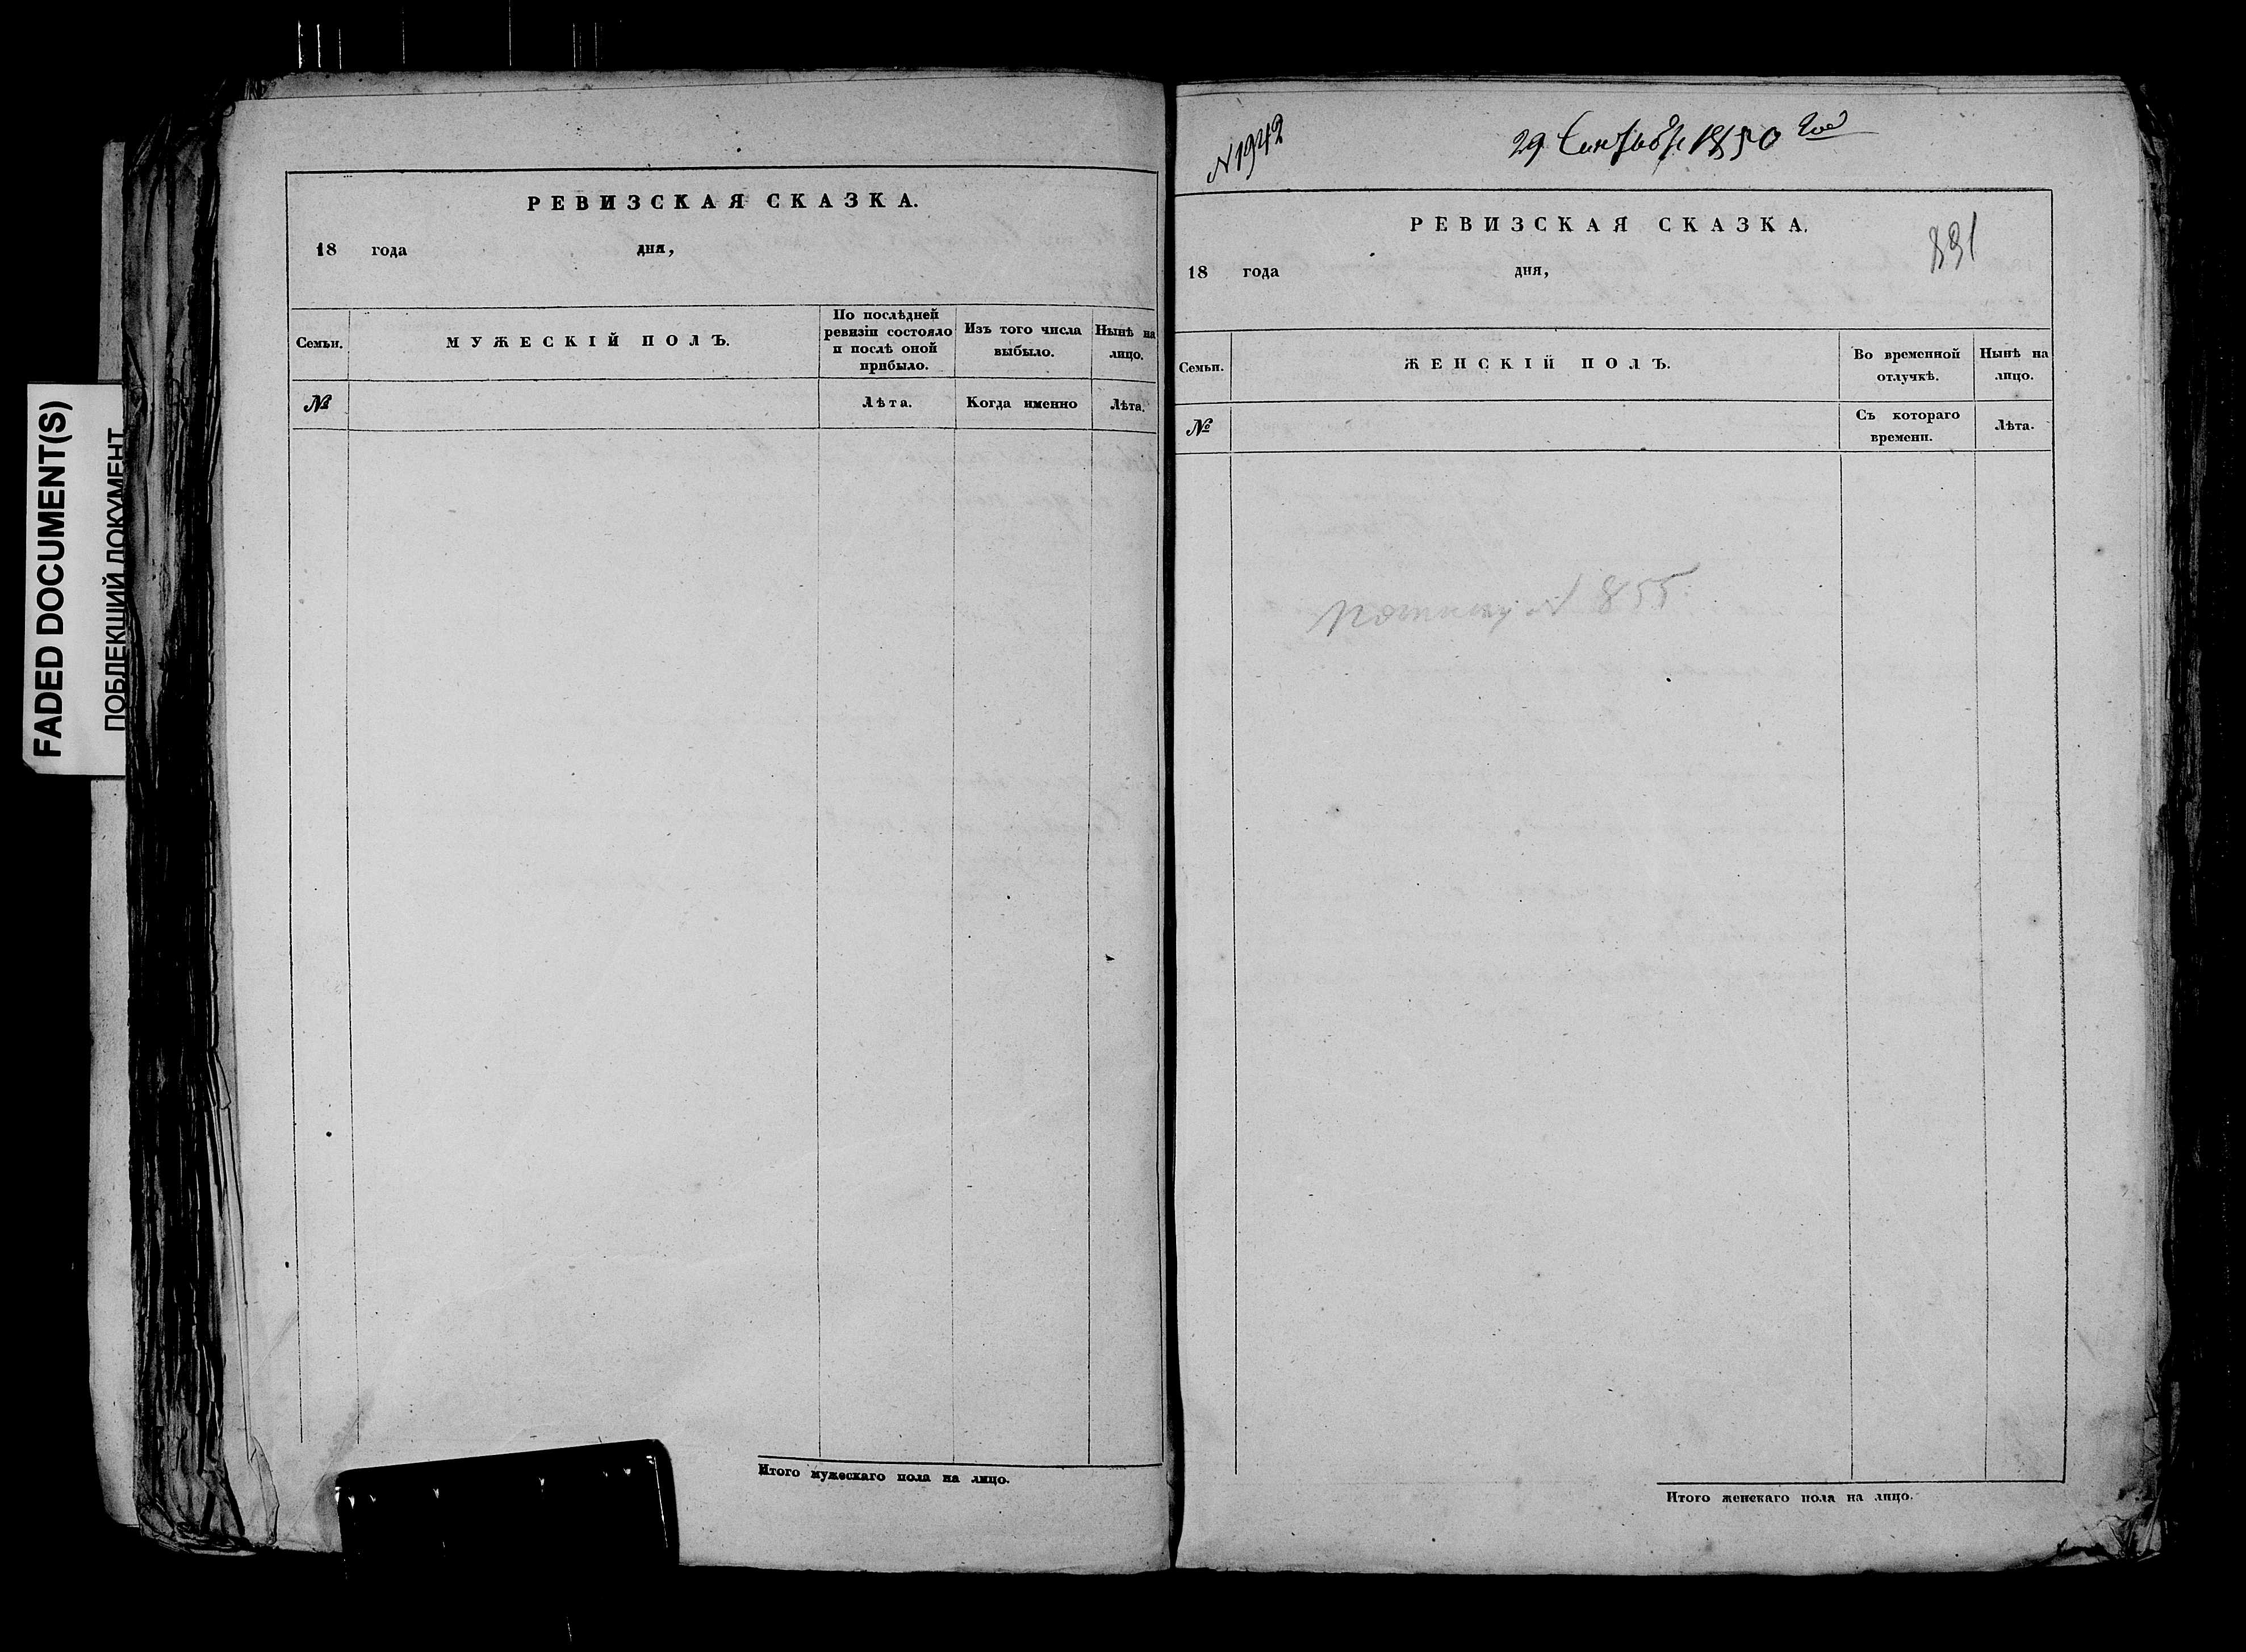 FADED DOCUMENT(S)
ПОБЛЕКШИЙ ДОКУМЕНТ
РЕВИЗСКАЯ СКАЗКА.
18 года дня,
Семьи. МУЖЕСКІЙ ПОЛЪ. По послѣдней ревизіи состояло и послѣ оной прибыло. Изъ того числа выбыло. Нынѣ на лицо.
№ Лѣта. Когда именно Лѣта.
Итого мужескаго пола на лицо.
N 1942
29 Сентября 1850 года
РЕВИЗСКАЯ СКАЗКА.
831
18 года дня,
Семьи. ЖЕНСКІЙ ПОЛЪ. Во временной отлучкѣ. Нынѣ на лицо.
№ Съ котораго времени. Лѣта.
N 855
Итого женскаго пола на лицо.